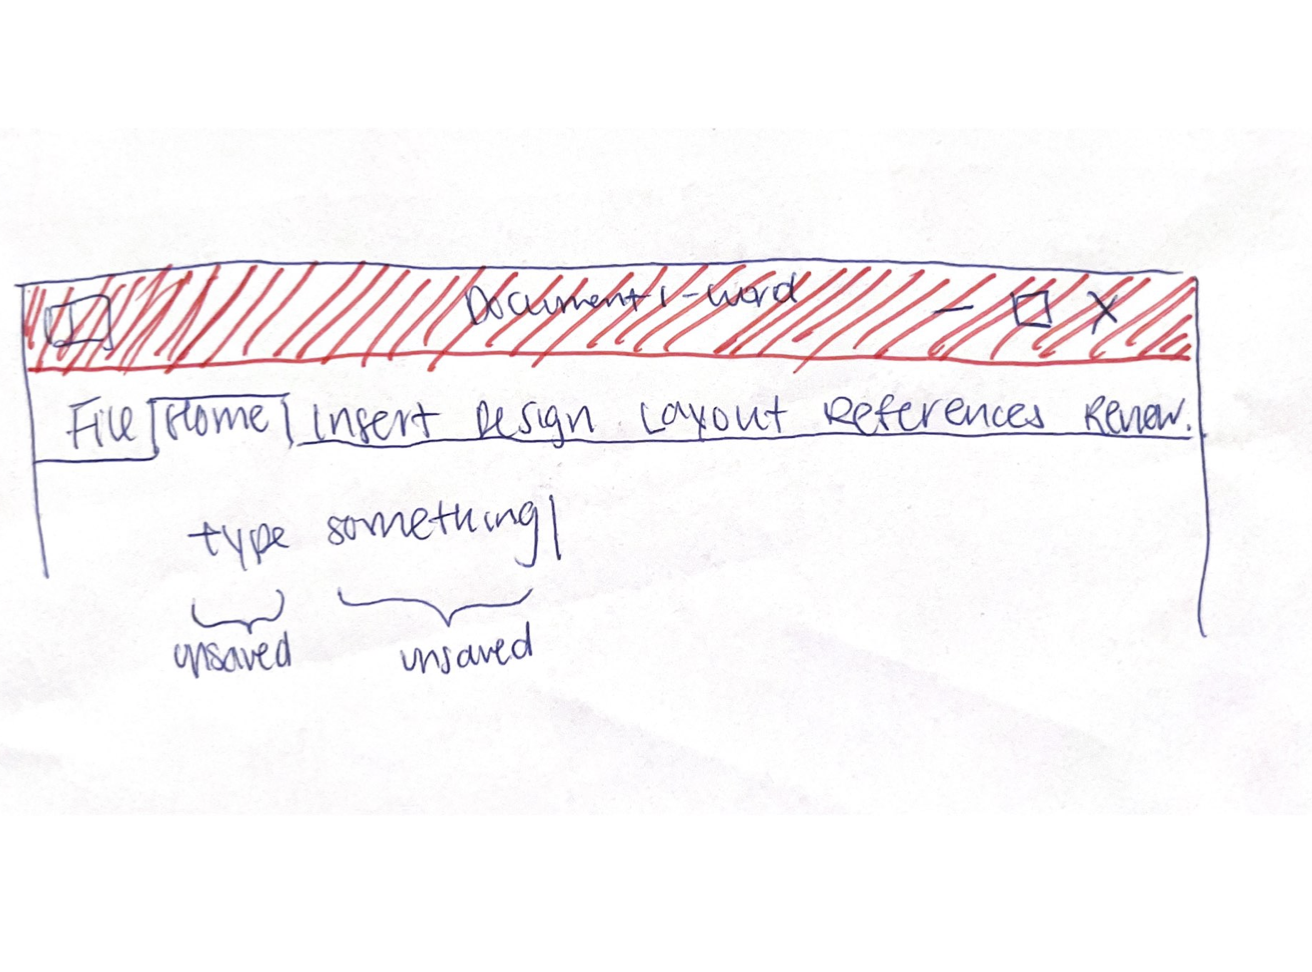 Document 1 - Word
File Home Insert Design Layout References Review.
type something|
unsaved unsaved